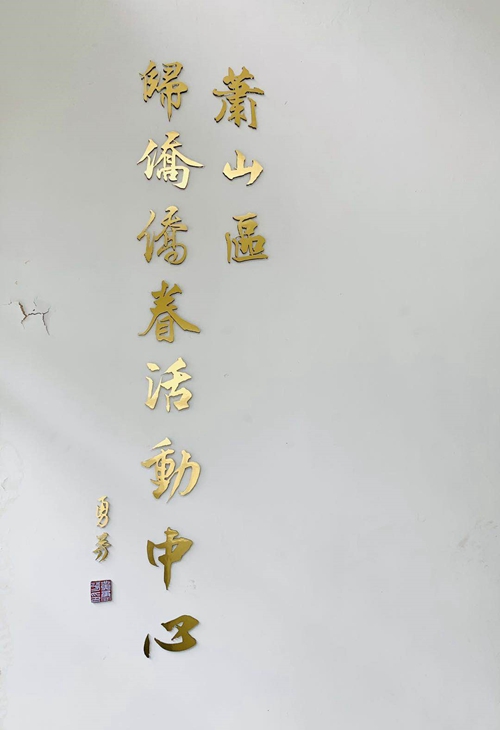 蕭山區
歸僑僑眷活動中心